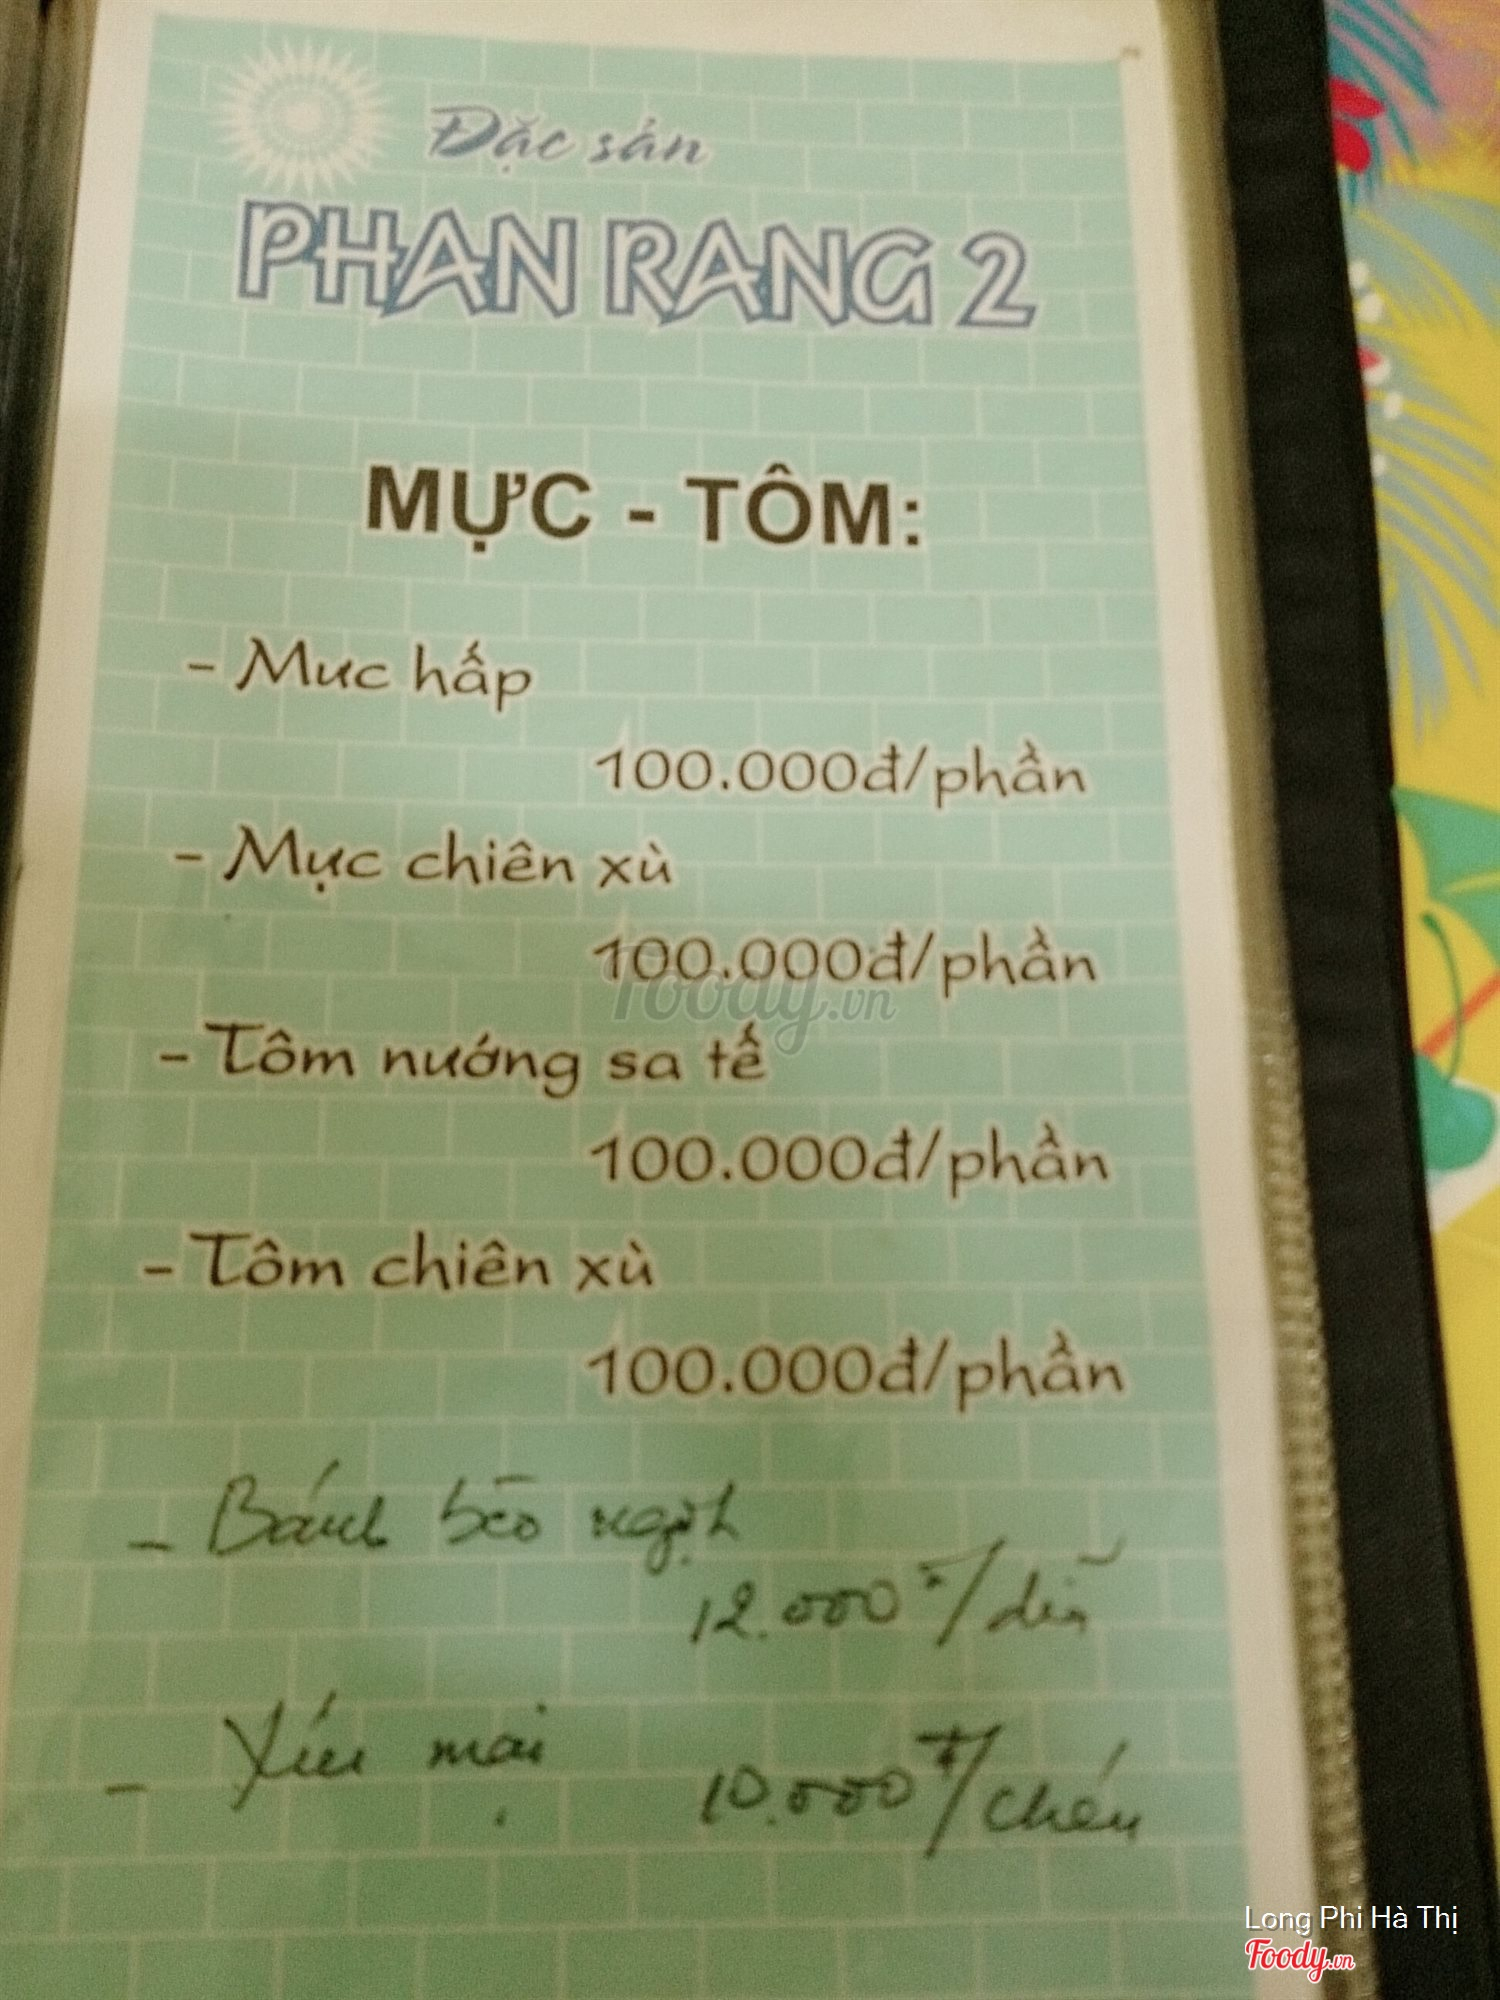 Đặc sản
PHAN RANG 2
MỰC - TÔM:
- Mưc hấp
100.000đ/phần
- Mực chiên xù
100.000đ/phần
foody.vn
- Tôm nướng sa tế
100.000đ/phần
- Tôm chiên xù
100.000đ/phần
- Bánh bèo ngọt
12.000đ/dĩa
- Xíu mại
10.000đ/chén
Long Phi Hà Thị
Foody.vn